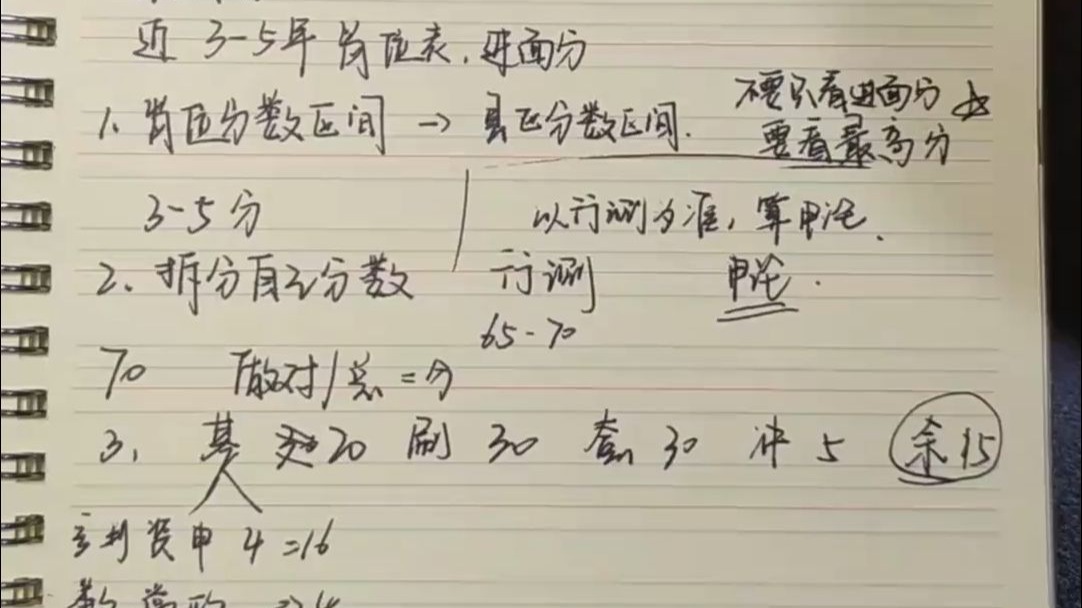 近 3-5年 岗位表，进面分
1、岗位分数区间 → 县区分数区间.
不要只看进面分 ☆
要看最高分
3-5分
以行测为准，算申论.
2、拆分自己分数 行测 申论.
65-70
70 做对/总 = 分
3、基 20 刷 30 套 30 冲 5 余15
言判资申 4=16
数常政